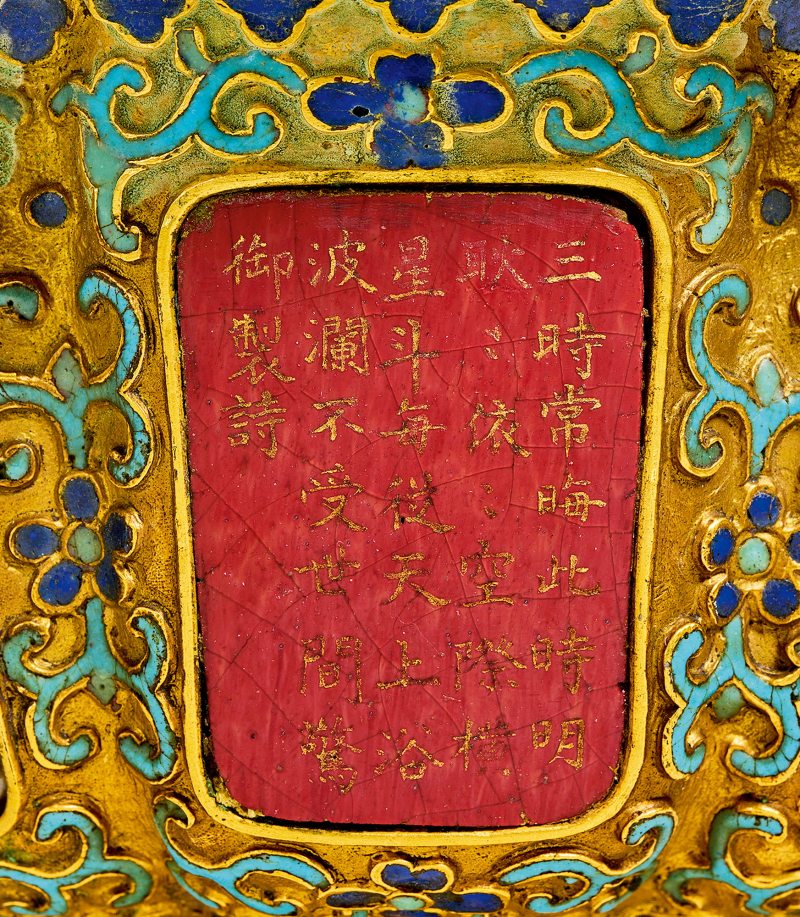 三時常晦此時明
耿:依:空際橫
星斗每從天上浴
波瀾不受世間驚
御製詩